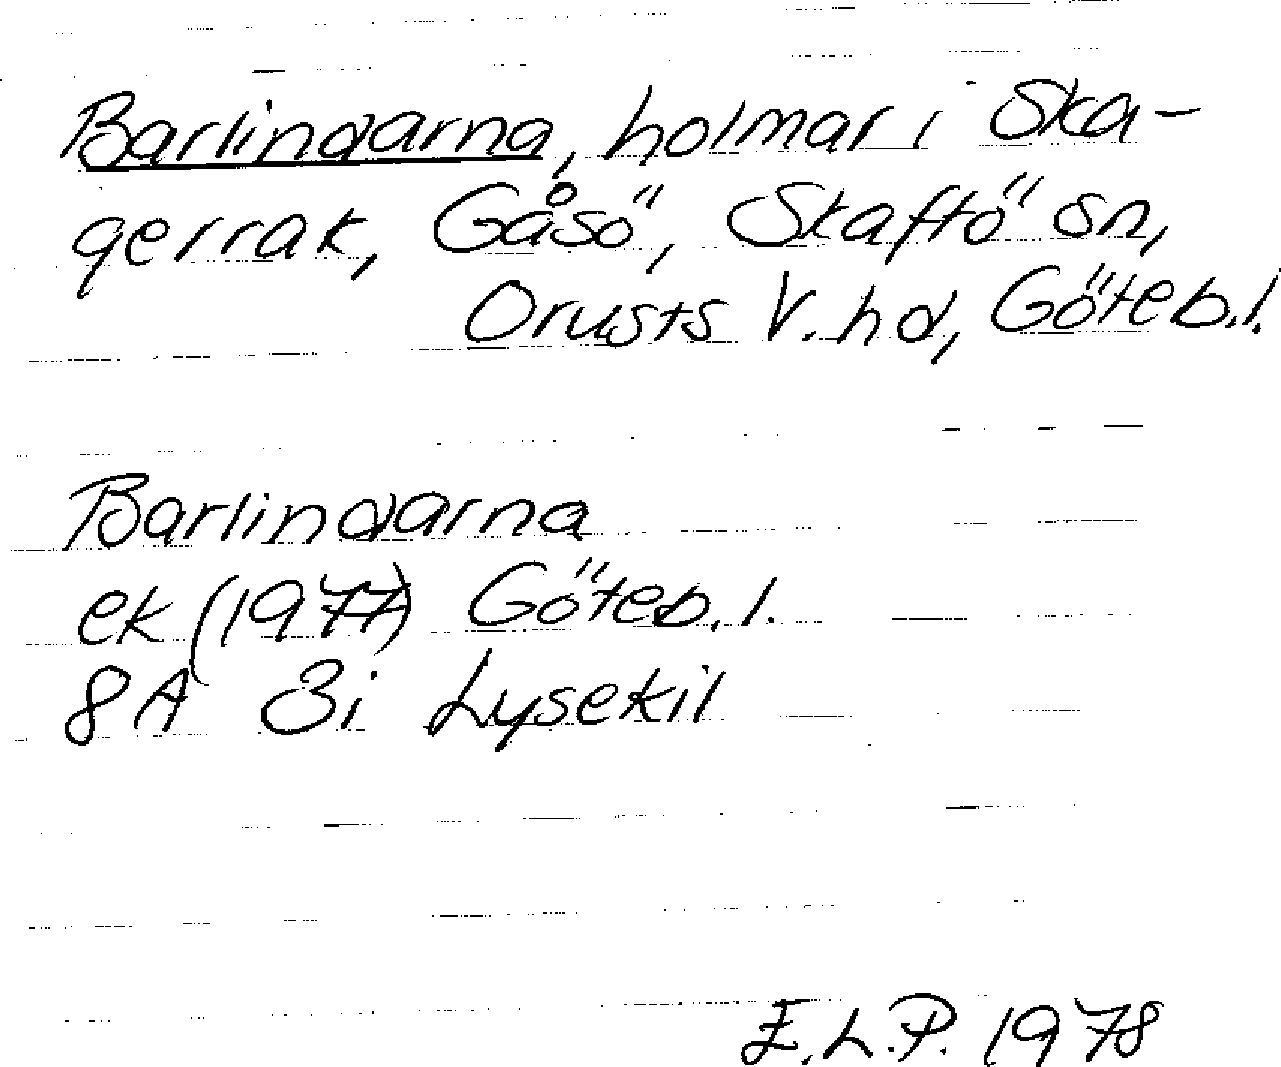 Barlindarna, holmar i Ska-
gerrak, Gåsö, Skaftö sn,
Orusts V. hd, Göteb. l.
Barlindarna
ek (1977) Göteb. l.
8A 3i Lysekil
E.L.P. 1978